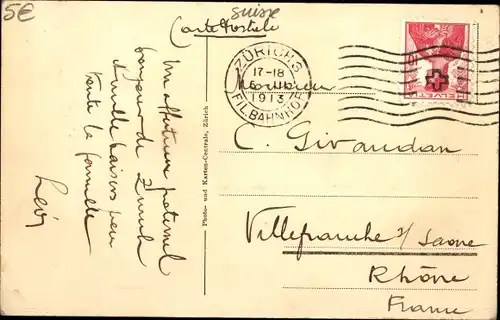 5€
Suisse
Carte Postale
ZÜRICH 3
17-18
1913
FIL. BAHNHOF
HELVETIA
Monsieur
C. Givaudan
Villefranche s/ Saone
Rhône
France
Un affectueux fraternel
bonjour de Zurich
et mille baisers pour
toute la famille
Léon
Photo- und Karten-Centrale, Zürich